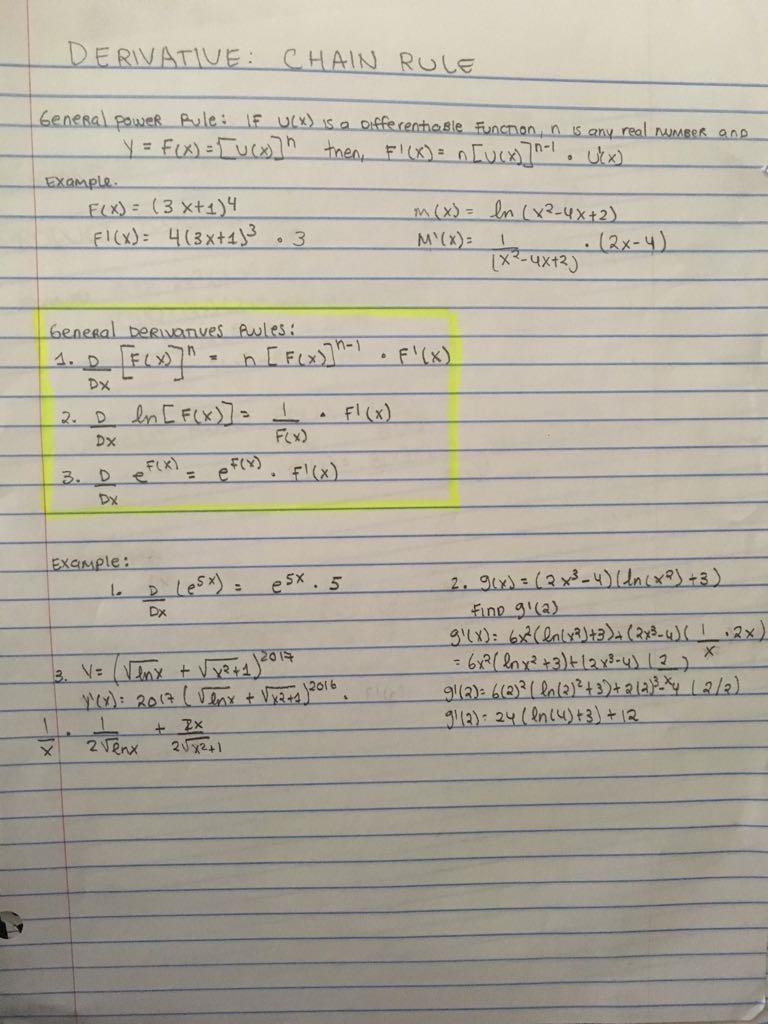 DERIVATIVE: CHAIN RULE
General power Rule: IF U(x) is a Differentiable Function, n is any real number and
Y = F(x) = [U(x)]^n then, F'(x) = n[U(x)]^n-1 · U'(x)
Example.
F(x) = (3x+1)^4
F'(x) = 4(3x+1)^3 · 3
m(x) = ln (x^2-4x+2)
M'(x) = 1/(x^2-4x+2) · (2x-4)
General Derivatives Rules:
1. D/Dx [F(x)]^n = n [F(x)]^n-1 · F'(x)
2. D/Dx ln [F(x)] = 1/F(x) · F'(x)
3. D/Dx e^F(x) = e^F(x) · F'(x)
Example:
1. D/Dx (e^5x) = e^5x · 5
2. g(x) = (2x^3-4)(ln(x^2)+3)
Find g'(2)
g'(x): 6x^2(ln(x^2)+3)+(2x^3-4)(1/x · 2x)
= 6x^2(lnx^2+3)+(2x^3-4)(2/x)
g'(2) = 6(2)^2(ln(2)^2+3)+2(2)^3-4 (2/2)
g'(2) = 24(ln(4)+3)+12
3. Y = (√lnx + √x^2+1)^2017
Y'(x): 2017(√lnx + √x^2+1)^2016 .
1/x · 1/2√lnx + 2x/2√x^2+1